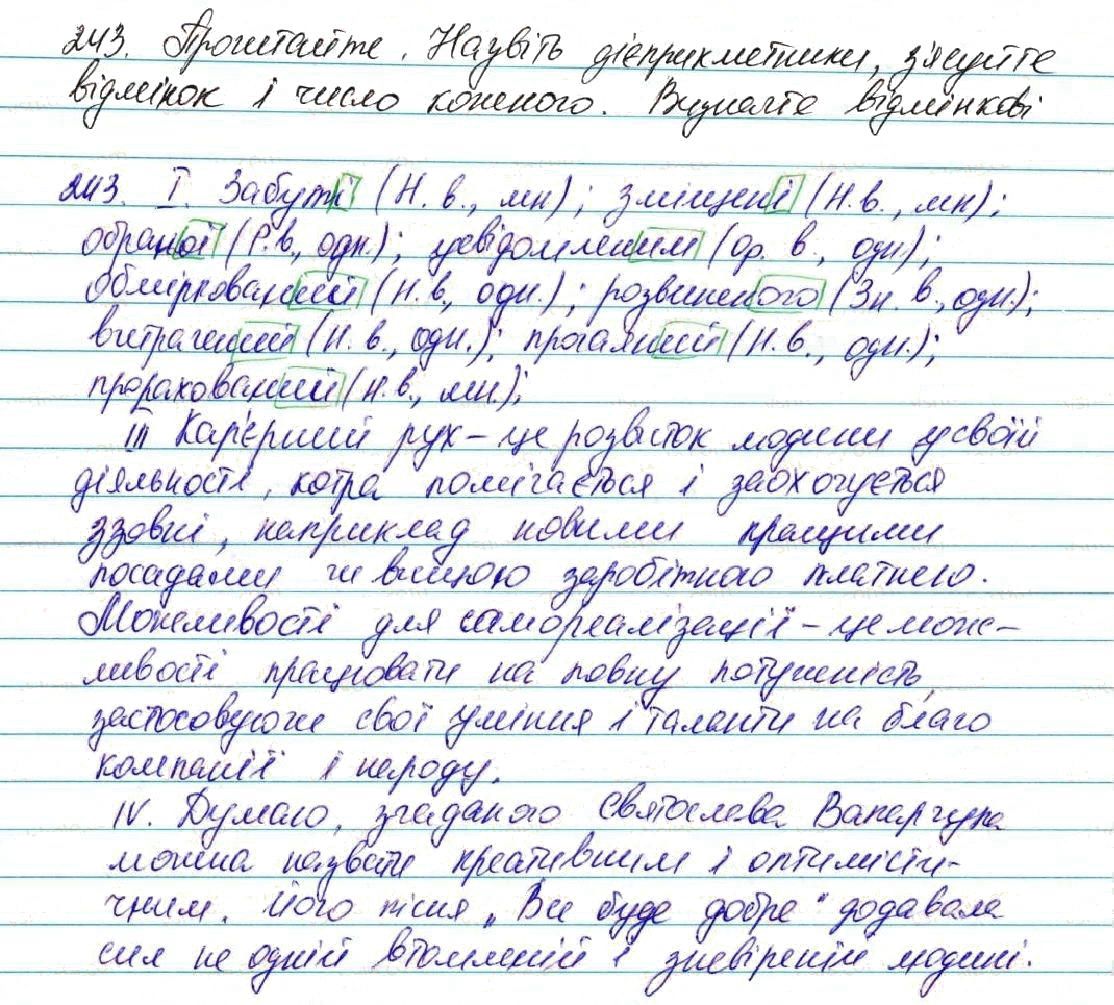 243. Прочитайте. Назвіть дієприкметники, з'ясуйте
відмінок і число кожного. Визначте відмінкові
243. I. Забуті (Н. в., мн); зміщені (Н. в., мн);
обраної (Р. в., одн.); усвідомленим (Ор. в., одн.);
обміркований (Н. в., одн.); розвиненого (Зн. в., одн.);
витрачений (Н. в., одн.); прогаяний (Н. в., одн.);
прорахований (Н. в., мн.);
III Кар'єрний рух – це розвиток людини у своїй
діяльності, котра помічається і заохочується
ззовні, наприклад новими кращими
посадами чи вищою заробітною платнею.
Можливості для самореалізації – це мож-
ливості працювати на повну потужність,
застосовуючи свої уміння і таланти на благо
компанії і народу.
IV. Думаю, згаданого Святослава Вакарчука
можна назвати креативним і оптимісти-
чним. Його пісня „Все буде добре" додавала
сил не одній втомленій і зневіреній людині.